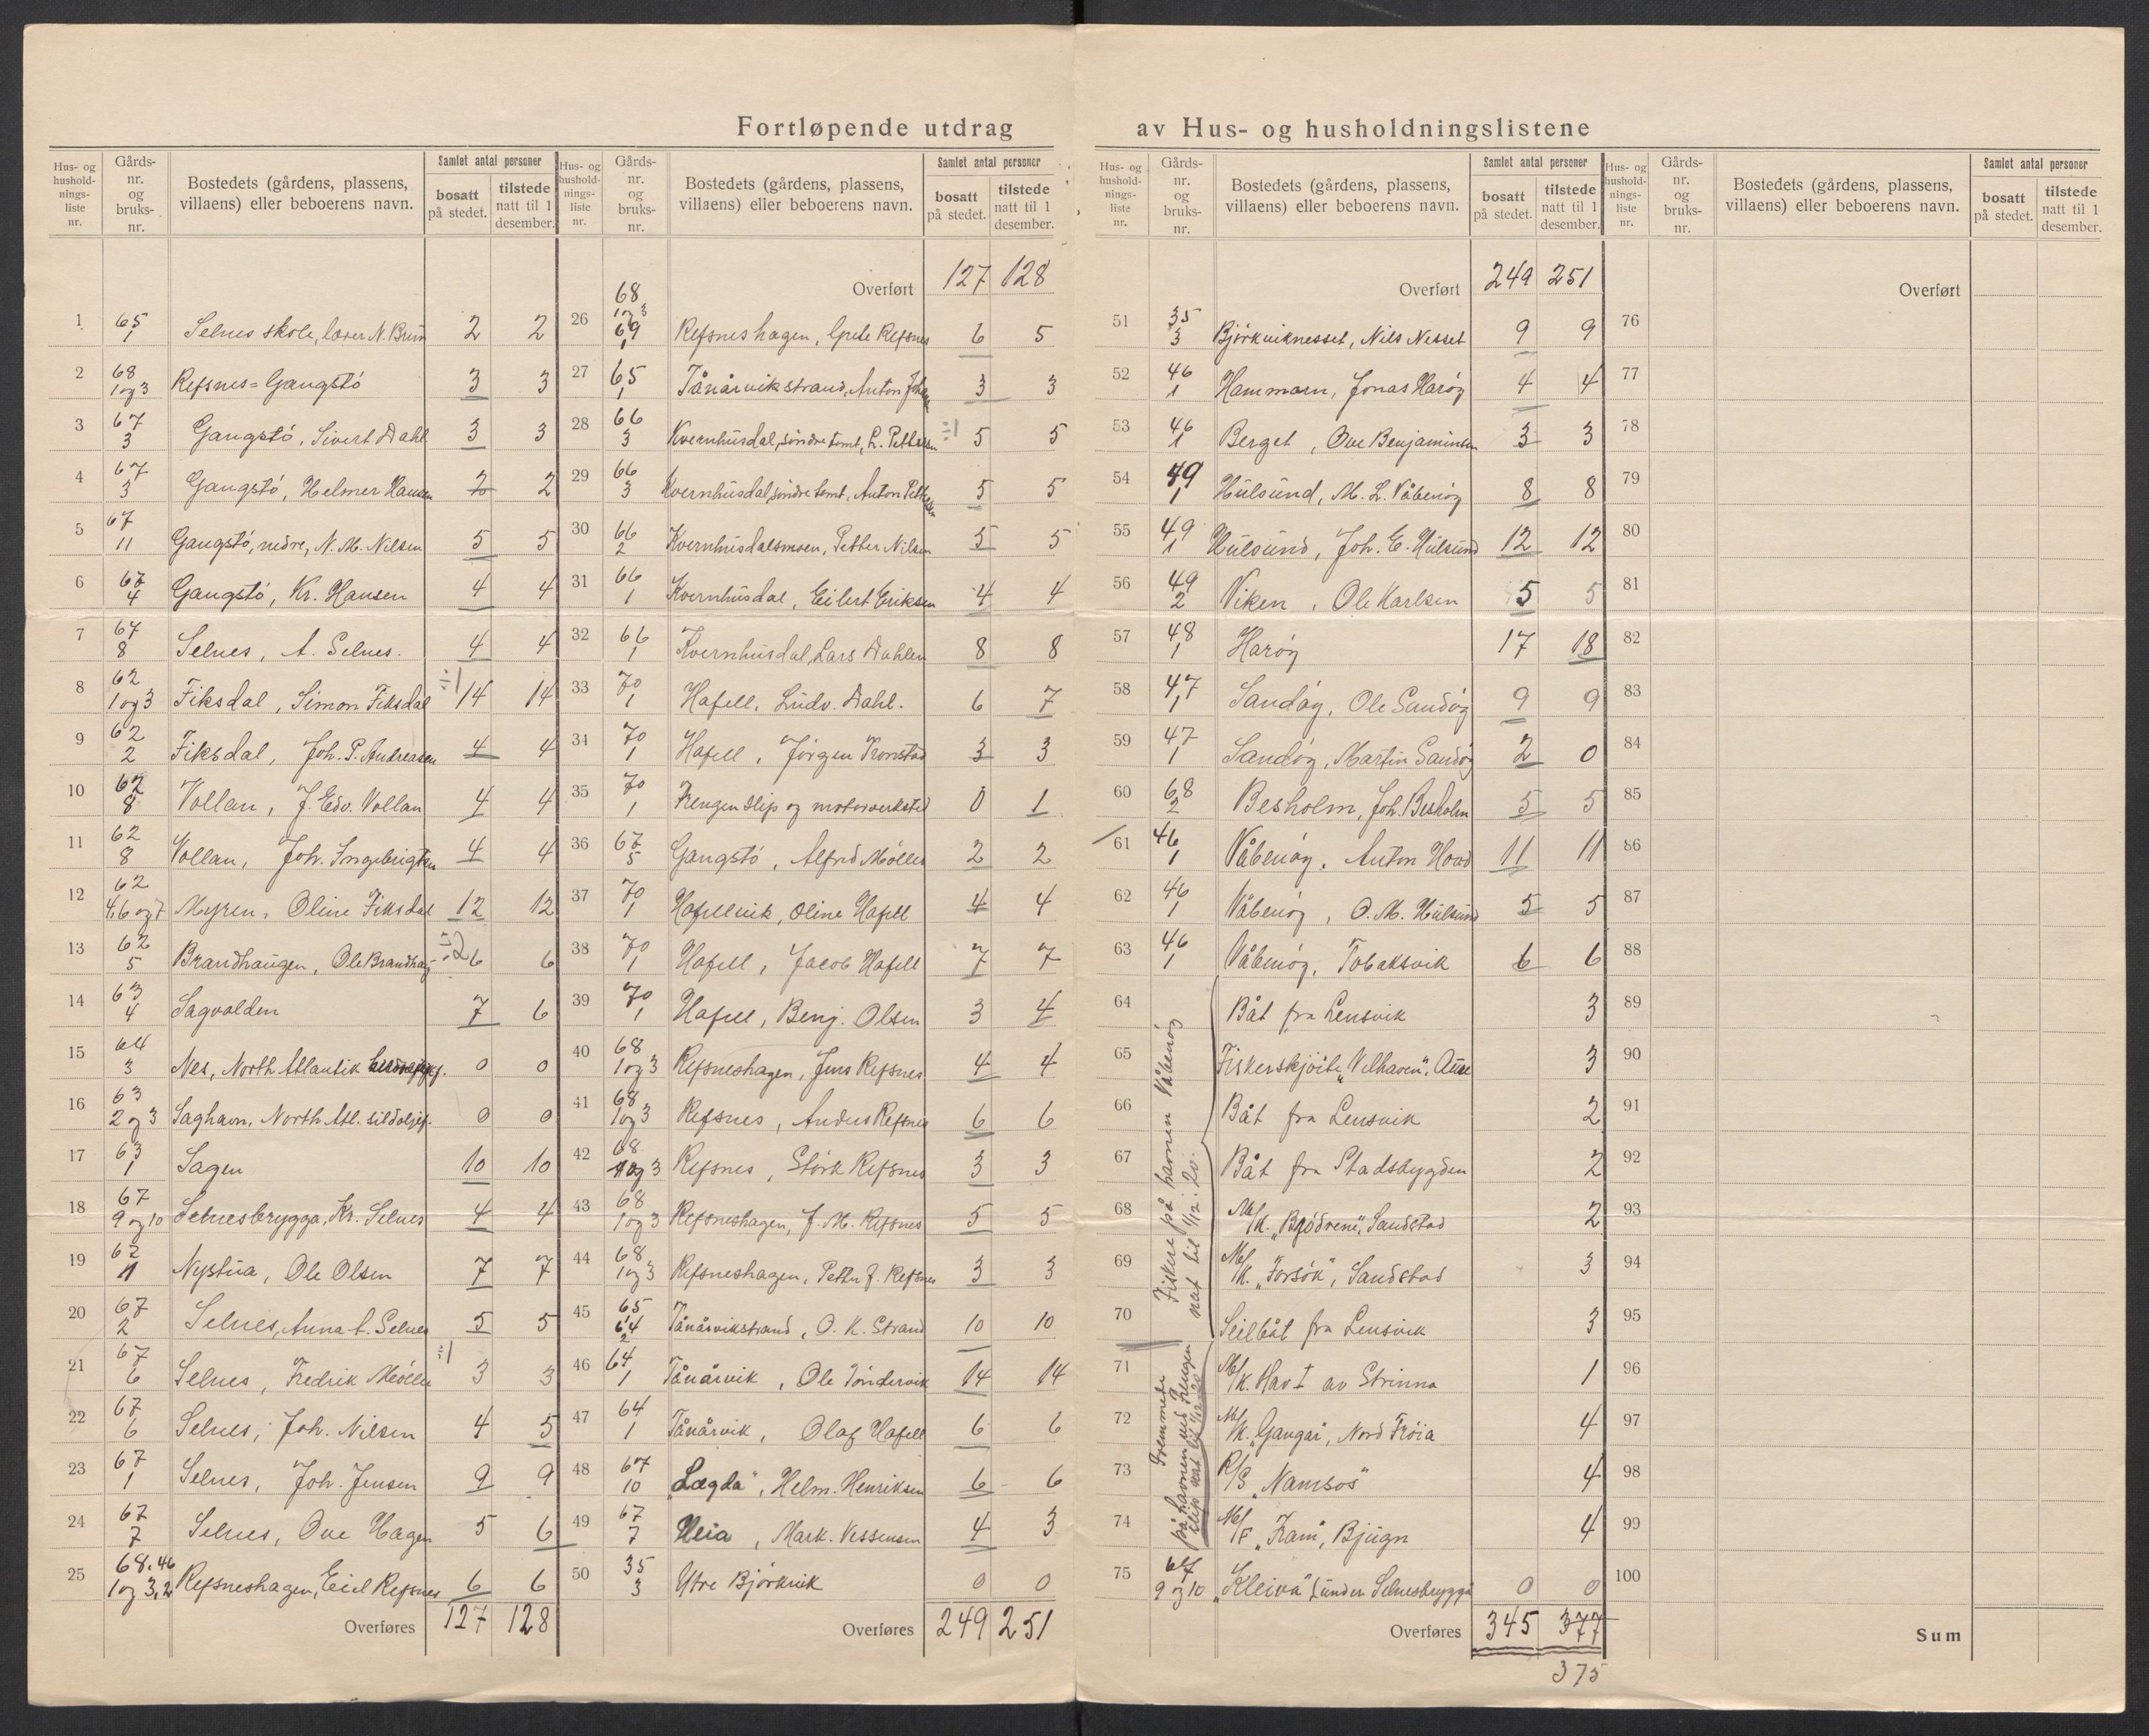 Fortløpende utdrag av Hus- og husholdningslistene
Hus- og husholdnings-liste nr. Gårds-nr. og bruks-nr. Bostedets (gårdens, plassens, villaens) eller beboerens navn. Samlet antal personer bosatt på stedet. tilstede natt til 1 desember.
1 65 1 Selnes skole, lærer N. Bruun 2 2
2 68 1 og 3 Refsnes=Gangstö 3 3
3 67 3 Gangstö, Sivert Dahl 3 3
4 67 3 Gangstö, Helmer Hansen 2 2
5 67 11 Gangstö, nedre, N. M. Nilsen 5 5
6 67 4 Gangstö, Kr. Hansen 4 4
7 67 8 Selnes, A. Selnes. 4 4
8 62 1 og 3 Fiksdal, Simon Fiksdal ÷1 14 14
9 62 2 Fiksdal, Joh. P. Andreasen 4 4
10 62 8 Vollan, J. Edv. Vollan 4 4
11 62 8 Vollan, Joh. Ingebrigtsen 4 4
12 62 4,6 og 7 Myren, Oline Fiksdal 12 12
13 62 5 Brandhaugen, Ole Brandhaug ÷2 6 6
14 63 4 Sagvolden 7 6
15 64 3 Nes, North Atlantik 0 0
16 63 2 og 3 Saghavn, North Atl. sildoljef. 0 0
17 63 1 Sagen 10 10
18 67 9 og 10 Selnesbrygga, Kr. Selnes 4 4
19 62 11 Nystua, Ole Olsen 7 7
20 67 2 Selnes, Anna A. Selnes 5 5
21 67 6 Selnes, Fredrik Möller ÷1 3 3
22 67 6 Selnes, Joh. Nilsen 4 5
23 67 1 Selnes, Joh. Jensen 9 9
24 67 7 Selnes, Ove Hagen 5 6
25 68.46 1 og 3,2 Refsneshagen, Eiel Refsnes 6 6
Overføres 127 128
Hus- og husholdnings-liste nr. Gårds-nr. og bruks-nr. Bostedets (gårdens, plassens, villaens) eller beboerens navn. Samlet antal personer bosatt på stedet. tilstede natt til 1 desember.
Overført 127 128
26 68 1 og 3 69 1 Refsneshagen, Grete Refsnes 6 5
27 65 1 Tånårvikstrand, Anton Johansen 3 3
28 66 3 Kvernhusdal, söndre tomt, L. Pettersen ÷1 5 5
29 66 3 Kvernhusdal, söndre tomt, Anton Pettersen 5 5
30 66 2 Kvernhusdalsmoen, Petter Nilsen 5 5
31 66 1 Kvernhusdal, Eilert Eriksen 4 4
32 66 1 Kvernhusdal, Lars Dahlen 8 8
33 70 1 Hafell, Ludv. Dahl. 6 7
34 70 1 Hafell, Jörgen Tronstad 3 3
35 70 1 Trengen slip og motorverksted 0 1
36 67 5 Gangstö, Alfred Möller 2 2
37 70 1 Hafellvik, Oline Hafell 4 4
38 70 1 Hafell, Jacob Hafell 7 7
39 70 1 Hafell, Benj. Olsen 3 4
40 68 1 og 3 Refsneshagen, Jens Refsnes 4 4
41 68 1 og 3 Refsnes, Anders Refsnes 6 6
42 68 1 og 3 Refsnes, Störk Refsnes 3 3
43 68 1 og 3 Refsneshagen, J. M. Refsnes 5 5
44 68 1 og 3 Refsneshagen, Petter J. Refsnes 3 3
45 65 1 64 2 Tånårvikstrand, O. K. Strand 10 10
46 64 1 Tånårvik, Ole Töndervik 14 14
47 64 1 Tånårvik, Olaf Hafell 6 6
48 67 10 „Lægda", Helm. Henriksen 6 6
49 67 7 Heia, Mark. Vessensen 4 3
50 35 3 Ytre Björkvik 0 0
Overføres 249 251
Hus- og husholdnings-liste nr. Gårds-nr. og bruks-nr. Bostedets (gårdens, plassens, villaens) eller beboerens navn. Samlet antal personer bosatt på stedet. tilstede natt til 1 desember.
Overført 249 251
51 35 3 Björkviknesset, Nils Nesset 9 9
52 46 1 Hammarn, Jonas Haröy 4 4
53 46 1 Berget, Ove Benjaminsen 3 3
54 49 1 Hulsund, M. L. Våbenöy 8 8
55 49 1 Hulsund, Joh. E. Hulsund 12 12
56 49 2 Viken, Ole Karlsen 5 5
57 48 1 Haröy 17 18
58 47 1 Sandöy, Ole Sandöy 9 9
59 47 1 Sandöy, Martin Sandöy 2 0
60 68 2 Besholm, Joh. Besholm 5 5
61 46 1 Våbenöy, Anton Hovd 11 11
62 46 1 Våbenöy, O. M. Hulsund 5 5
63 46 1 Våbenöy, Tobaksvik 6 6
Fiskere på havnen Våbenöy
nat til 1/12. 20.
64 Båt fra Lensvik 3
65 Fiskerskjöite „Velhaven", Aure 3
66 Båt fra Lensvik 2
67 Båt fra Stadsbygden 2
68 M/K. „Brödrene", Sandstad 2
69 M/K. „Forsök", Sandstad 3
70 Seilbåt fra Lensvik 3
Fremmede
på havnen ved Trengen
slip nat til 1/12 20
71 M/K. Hav I av Strinna 1
72 M/K. „Gangar", Nord Fröia 4
73 R/S „Namsos" 4
74 M/F „Fram", Bjugn 4
75 67 9 og 10 „Kleiva" (under Selnesbrygga 0 0
Overføres 345 377
375
Hus- og husholdnings-liste nr. Gårds-nr. og bruks-nr. Bostedets (gårdens, plassens, villaens) eller beboerens navn. Samlet antal personer bosatt på stedet. tilstede natt til 1 desember.
Overført
76
77
78
79
80
81
82
83
84
85
86
87
88
89
90
91
92
93
94
95
96
97
98
99
100
Sum